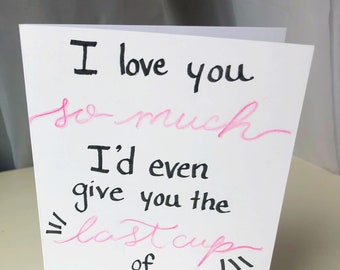 I love you
so much
I'd even
give you the
last cup
of